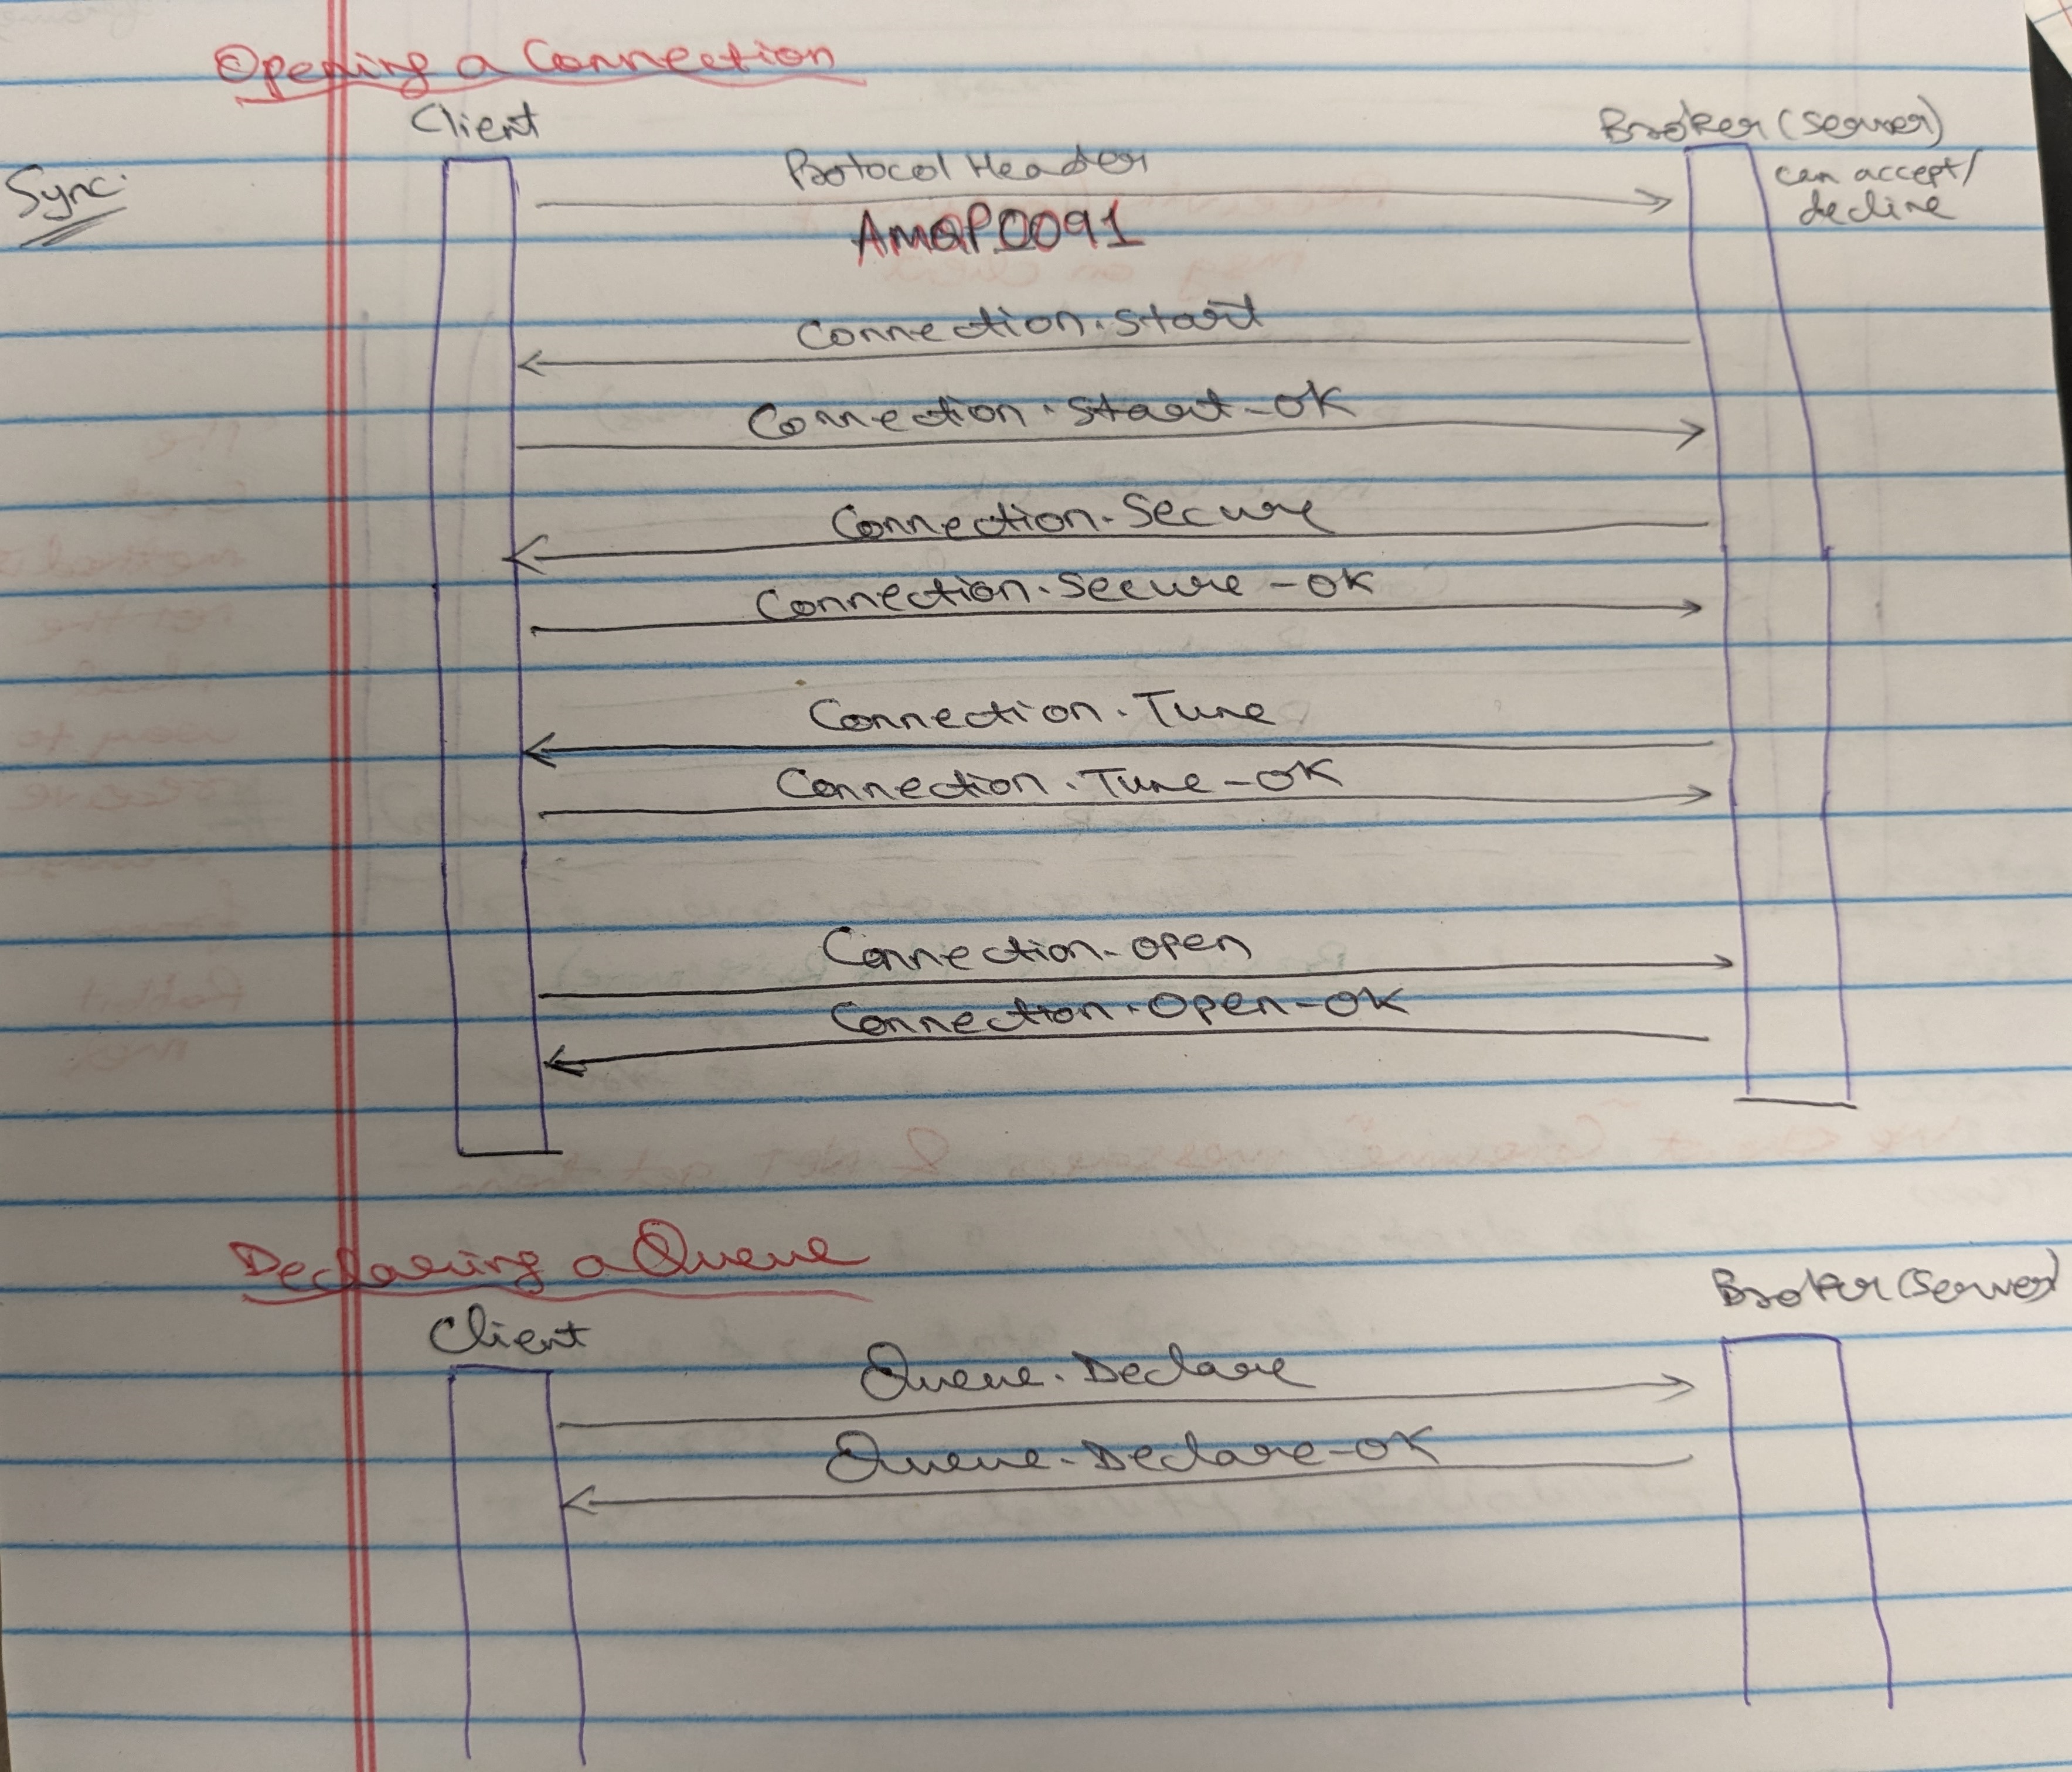 Opening a Connection
Client
Broker (Server)
Sync.
Protocol Header
can accept/
decline
AMQP0091
Connection.start
Connection.start-ok
Connection.Secure
Connection.Secure-ok
Connection.Tune
Connection.Tune-ok
Connection.open
Connection.Open-ok
Declaring a Queue
Client
Broker (Server)
Queue.Declare
Queue.Declare-ok